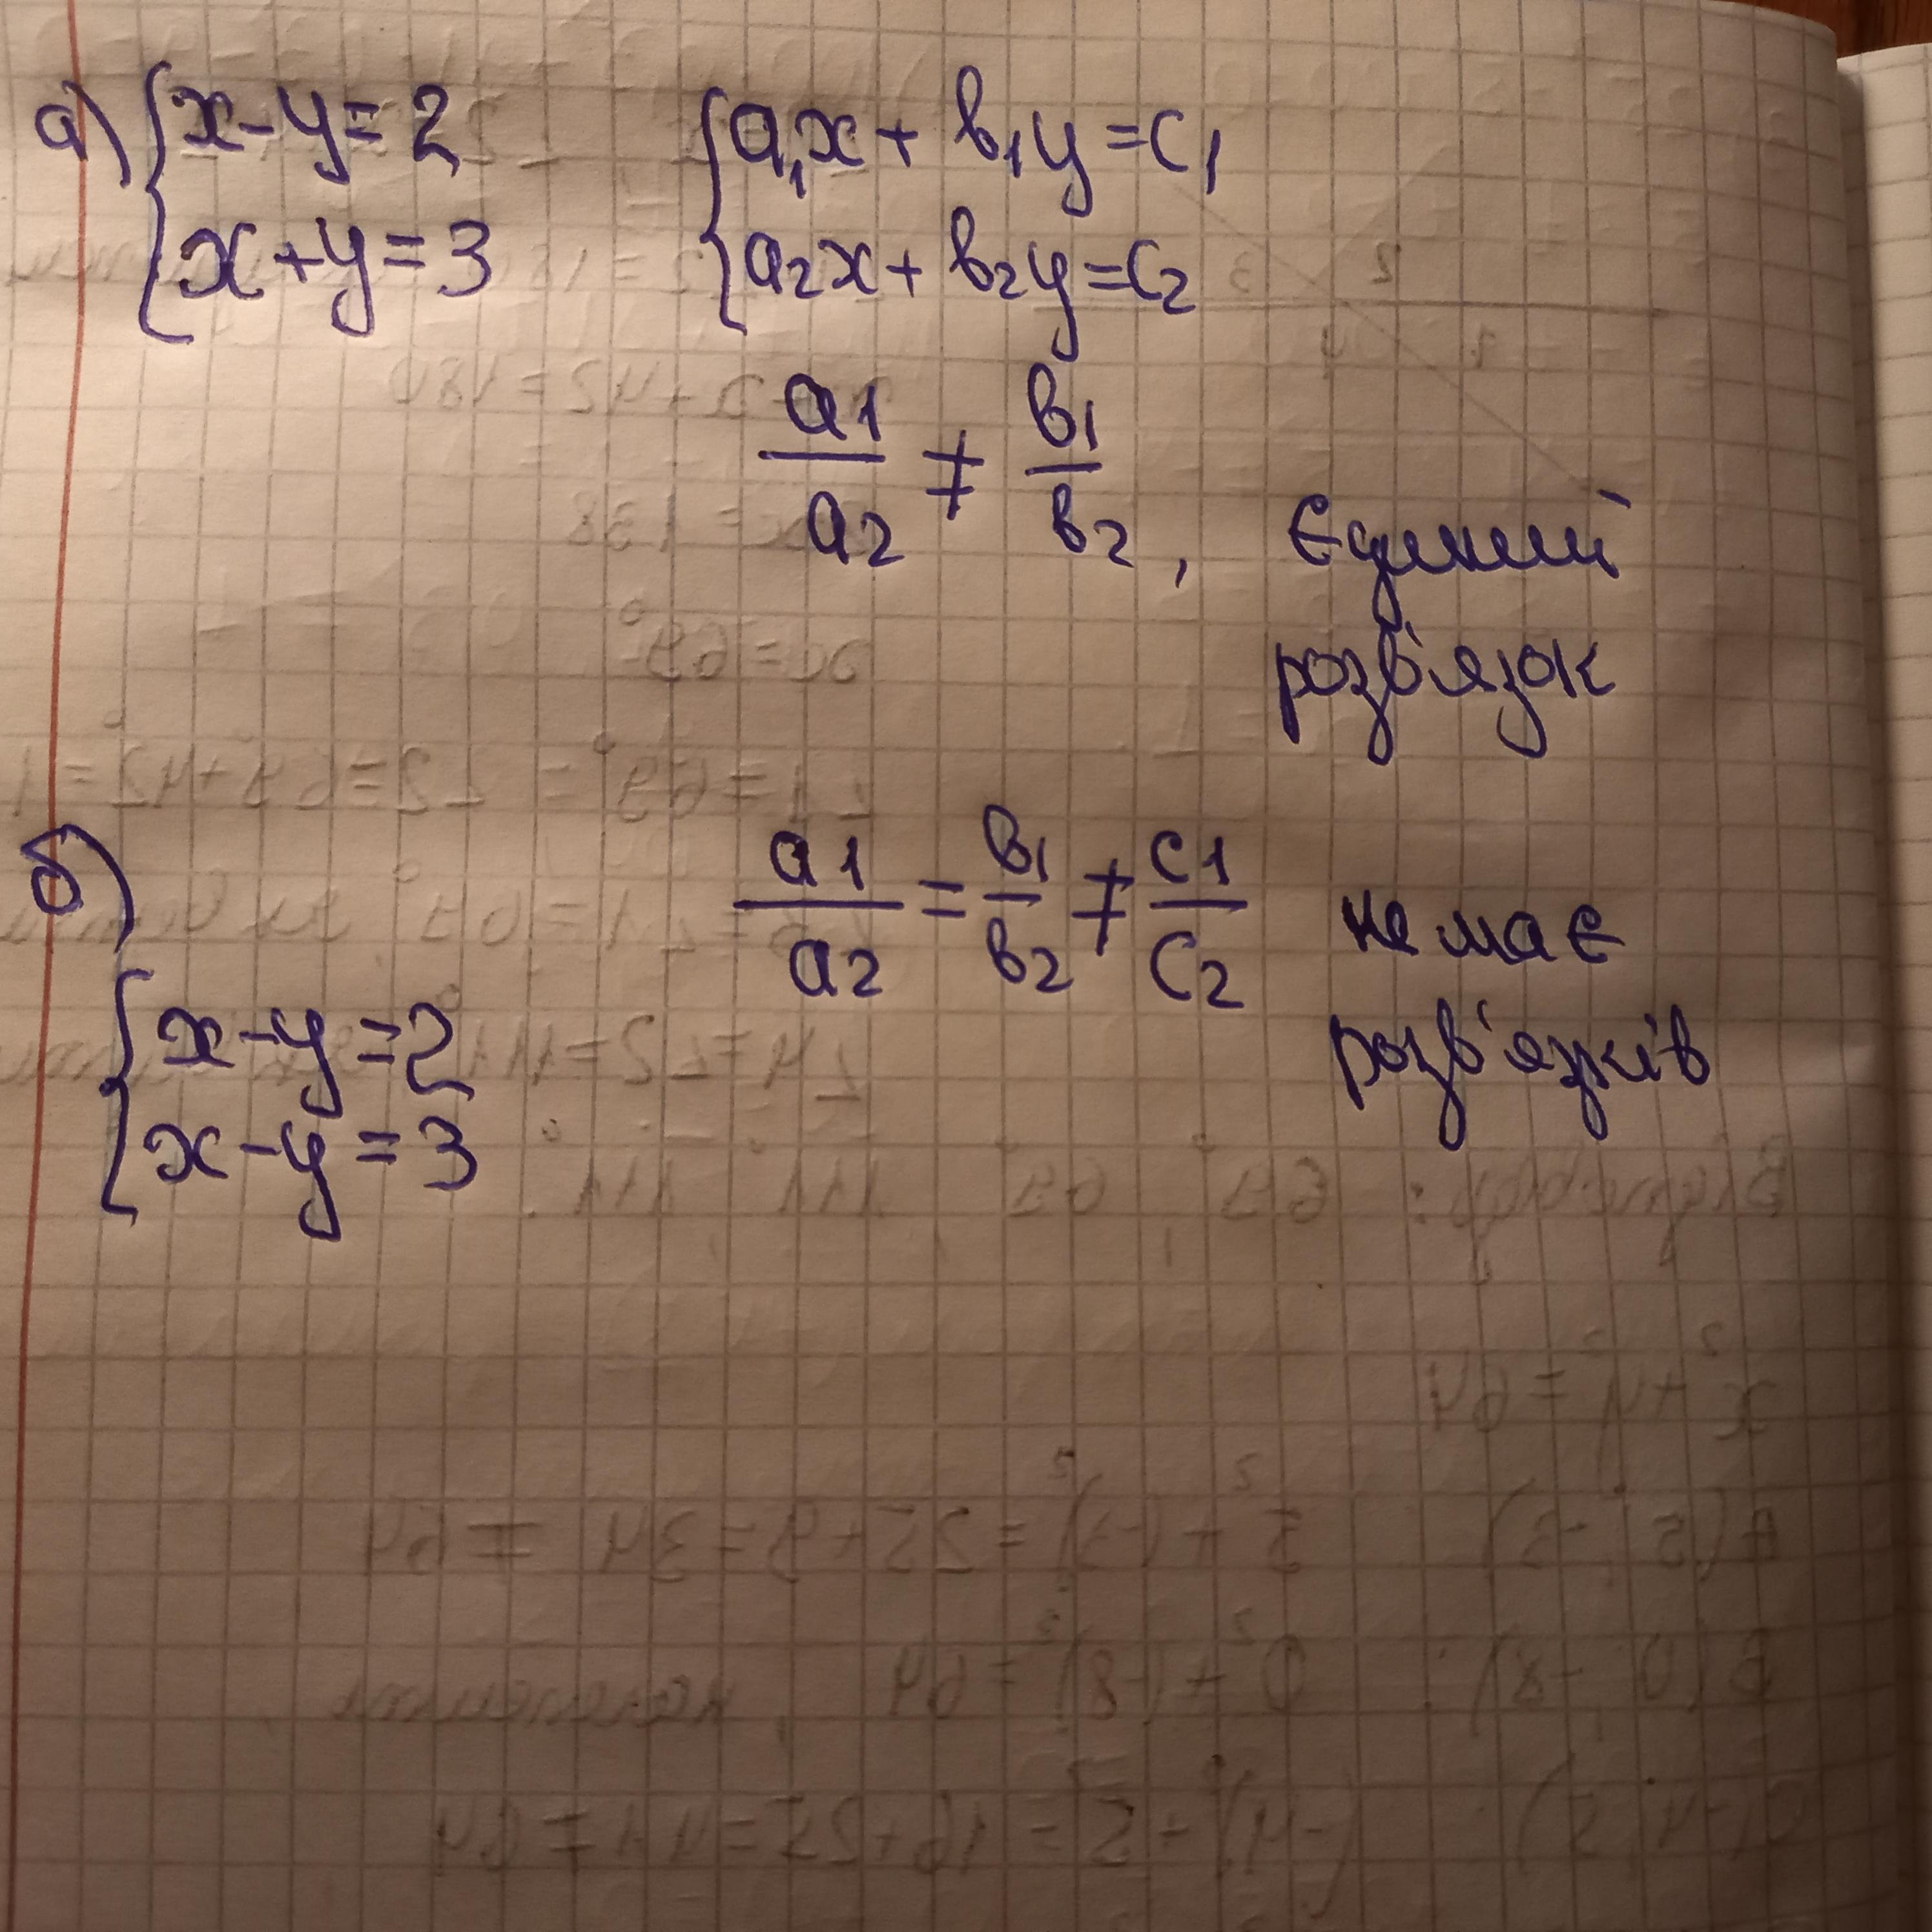 а) { x - y = 2
x + y = 3
{ a₁x + b₁y = c₁
a₂x + b₂y = c₂
a₁/a₂ ≠ b₁/b₂, Єдиний
розв'язок
б)
a₁/a₂ = b₁/b₂ ≠ c₁/c₂ не має
розв'язків
{ x - y = 2
x - y = 3